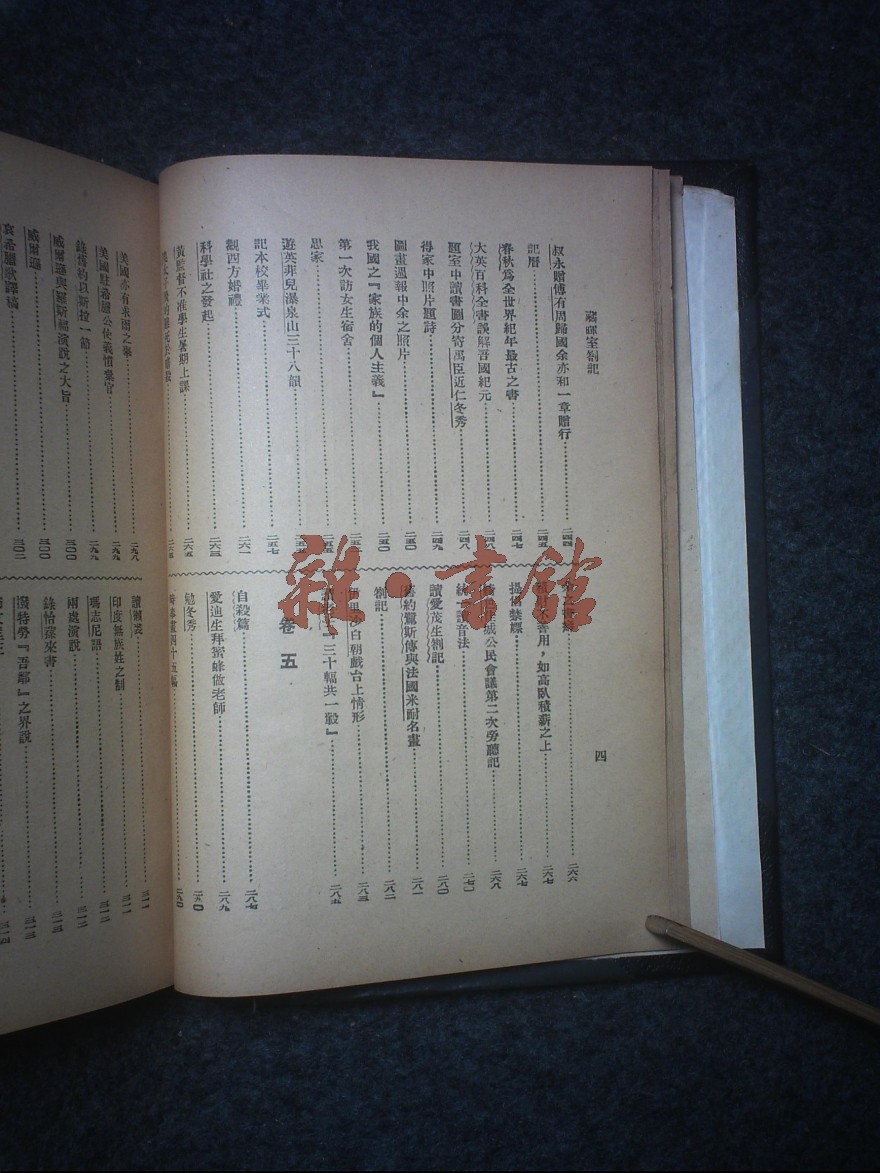 藏暉室劄記
四
叔永贈傅有周歸國余亦和一章贈行 二四四
記曆 二四五
春秋為全世界紀年最古之書 二四七
大英百科全書誤解吾國紀元 二四八
題室中讀書圖分寄禹臣近仁冬秀 二四八
得家中照片題詩 二四九
圖畫週報中余之照片 二五〇
我國之『家族的個人主義』 二五〇
第一次訪女生宿舍
思家
遊英菲兒瀑泉山三十八韻
記本校畢業式 二五七
觀西方婚禮 二六一
科學社之發起 二六三
黃監督不准學生暑期上課 二六五
二六五
二六六
善用，如高臥積薪之上 二六七
提倡禁嫖 二六七
城公民會議第二次旁聽記 二六八
統一讀音法 二七〇
讀愛茂生劄記 二八〇
舊約鷺斯傳與法國米耐名畫 二八一
劄記 二八二
里沙白朝戲台上情形 二八三
『三十輻共一轂』 二八五
卷五
自殺篇 二八七
愛迪生拜蜜蜂做老師 二八九
勉冬秀 二九〇
每毒畫四十五幅 二九〇
美國亦有求雨之舉 二九八
美國駐希臘公使義憤棄官 二九九
錄舊約以斯拉一節 二九九
威爾遜與羅斯福演說之大旨 三〇〇
威爾遜 三〇〇
哀希臘歌譯稿 三〇二
讀爾雅 三一一
印度無族姓之制 三一一
瑪志尼語 三一二
兩處演說 三一二
錄怡蓀來書 三一三
潑特勞『吾鄰』之界說 三一三
三一四
雜·書館